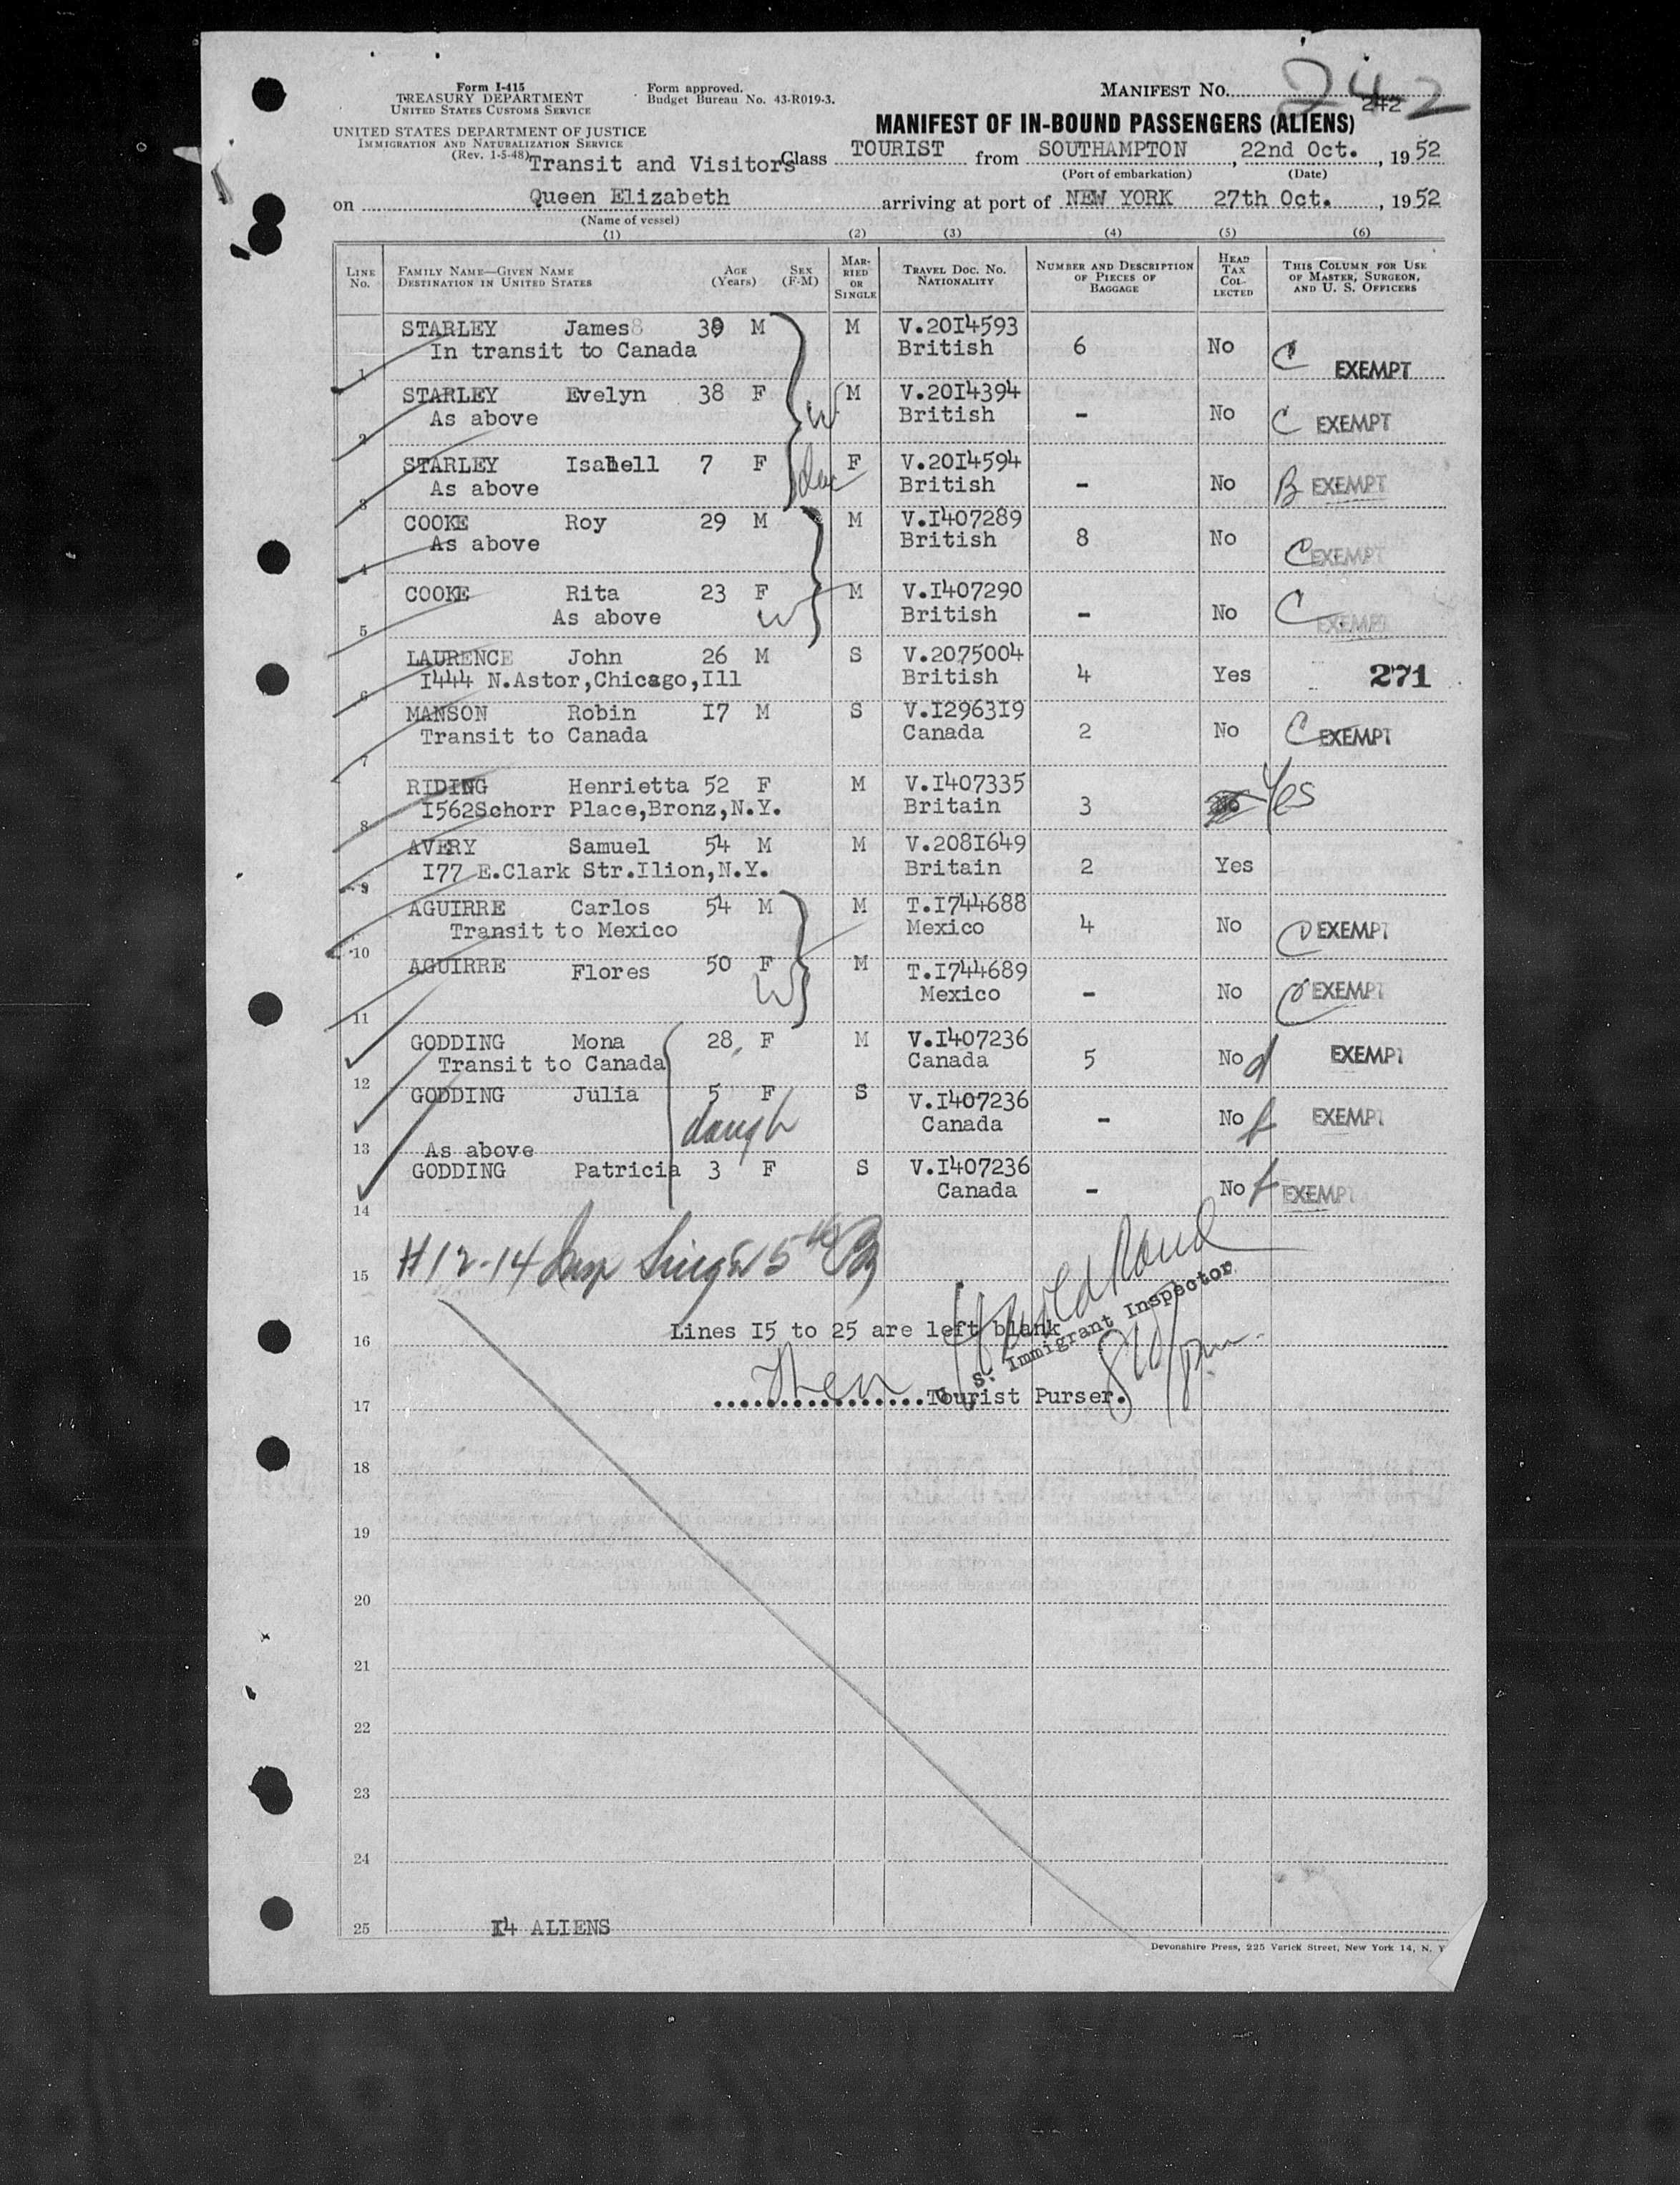 Form I-415
TREASURY DEPARTMENT
UNITED STATES CUSTOMS SERVICE
UNITED STATES DEPARTMENT OF JUSTICE
IMMIGRATION AND NATURALIZATION SERVICE
(Rev. 1-5-48)
Form approved.
Budget Bureau No. 43-R019-3.
MANIFEST No. 242
242
MANIFEST OF IN-BOUND PASSENGERS (ALIENS)
Transit and Visitors Class TOURIST from SOUTHAMPTON, 22nd Oct., 1952
(Port of embarkation) (Date)
on Queen Elizabeth arriving at port of NEW YORK 27th Oct., 1952
(Name of vessel)
(1) (2) (3) (4) (5) (6)
LINE No. FAMILY NAME—GIVEN NAME DESTINATION IN UNITED STATES AGE (Years) SEX (F-M) MARRIED OR SINGLE TRAVEL DOC. No. NATIONALITY NUMBER AND DESCRIPTION OF PIECES OF BAGGAGE HEAD TAX COLLECTED THIS COLUMN FOR USE OF MASTER, SURGEON, AND U. S. OFFICERS
STARLEY James 39 M M V.20I4593
1 In transit to Canada British 6 No C EXEMPT
STARLEY Evelyn 38 F W M V.20I4394
2 As above British - No C EXEMPT
STARLEY Isabell 7 F F V.20I4594
3 As above British - No B EXEMPT
COOKE Roy 29 M M V.I407289
4 As above British 8 No C EXEMPT
COOKE Rita 23 F W M V.I407290
5 As above British - No C EXEMPT
LAURENCE John 26 M S V.2075004
6 I444 N.Astor,Chicago,Ill British 4 Yes 271
MANSON Robin I7 M S V.I2963I9
7 Transit to Canada Canada 2 No C EXEMPT
RIDING Henrietta 52 F M V.I407335
8 I562Schorr Place,Bronz,N.Y. Britain 3 No Yes
AVERY Samuel 54 M M V.208I649
9 I77 E.Clark Str.Ilion,N.Y. Britain 2 Yes
AGUIRRE Carlos 54 M M T.I744688
10 Transit to Mexico Mexico 4 No EXEMPT
AGUIRRE Flores 50 F W M T.I744689
11 Mexico - No EXEMPT
GODDING Mona 28 F M V.I407236
12 Transit to Canada Canada 5 No d EXEMPT
GODDING Julia 5 F S V.I407236
daugh Canada - No f EXEMPT
13 As above
GODDING Patricia 3 F S V.I407236
14 Canada - No f EXEMPT
15 #12-14 Insp
16 Lines I5 to 25 are left blank
U. S. Immigrant Inspector
17 Tourist Purser.
18
19
20
21
22
23
24
25 I4 ALIENS
Devonshire Press, 225 Varick Street, New York 14, N. Y